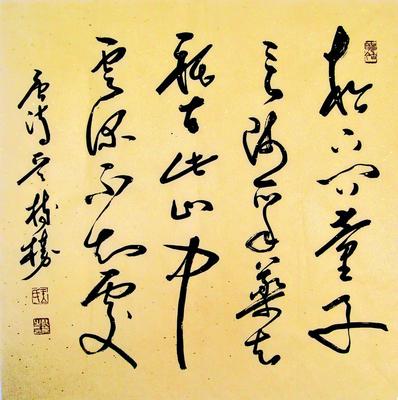 松下问童子
言师采药去
祇在此山中
雲深不知處
唐诗